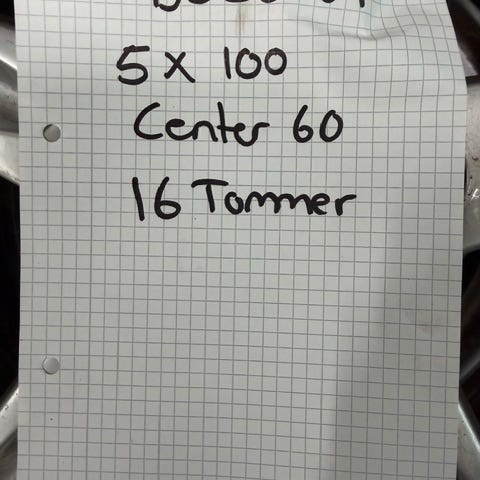 5 x 100
Center 60
16 Tommer